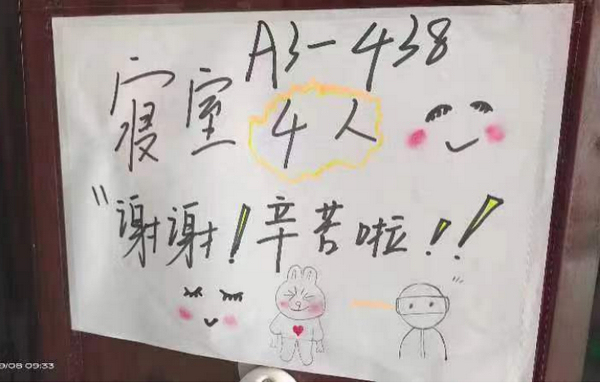 A3-438
寝室 4人
"谢谢!辛苦啦!!
9/08 09:33